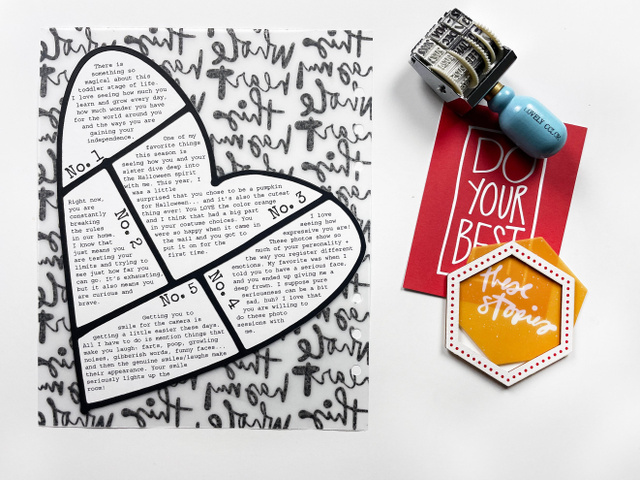 There is
something so
magical about this
toddler stage of life.
I love seeing how much you
learn and grow every day,
how much wonder you have
for the world around you
and the ways you are
gaining your
independence.
No. 1
One of my
favorite things
this season is
seeing how you and your
sister dive deep into
the Halloween spirit
with me. This year, I
was a little
surprised that you chose to be a pumpkin
for Halloween... and it's also the cutest
thing ever! You LOVE the color orange
and I think that had a big part
in your costume choices. You
were so happy when it came in
the mail and you got to
put it on for the
first time.
No. 2
Right now,
you are
constantly
breaking
the rules
in our home.
I know that
just means you
are testing your
limits and trying to
see just how far you
can go. It's exhausting,
but it also means you
are curious and
brave.
No. 3
I love
seeing how
expressive you are!
These photos show so
much of your personality +
the way you register different
emotions. My favorite was when I
told you to have a serious face,
and you ended up giving me a
deep frown. I suppose pure
seriousness can be a bit
sad, huh? I love that
you are willing to
do these photo
sessions with
me.
No. 4
No. 5
Getting you to
smile for the camera is
getting a little easier these days.
All I have to do is mention things that
make you laugh: farts, poop, growling
noises, gibberish words, funny faces...
and then the genuine smiles/laughs make
their appearance. Your smile
seriously lights up the
room!
this
has my
whole
heart
LOVELY COLOR
DO
YOUR
BEST
these
stories